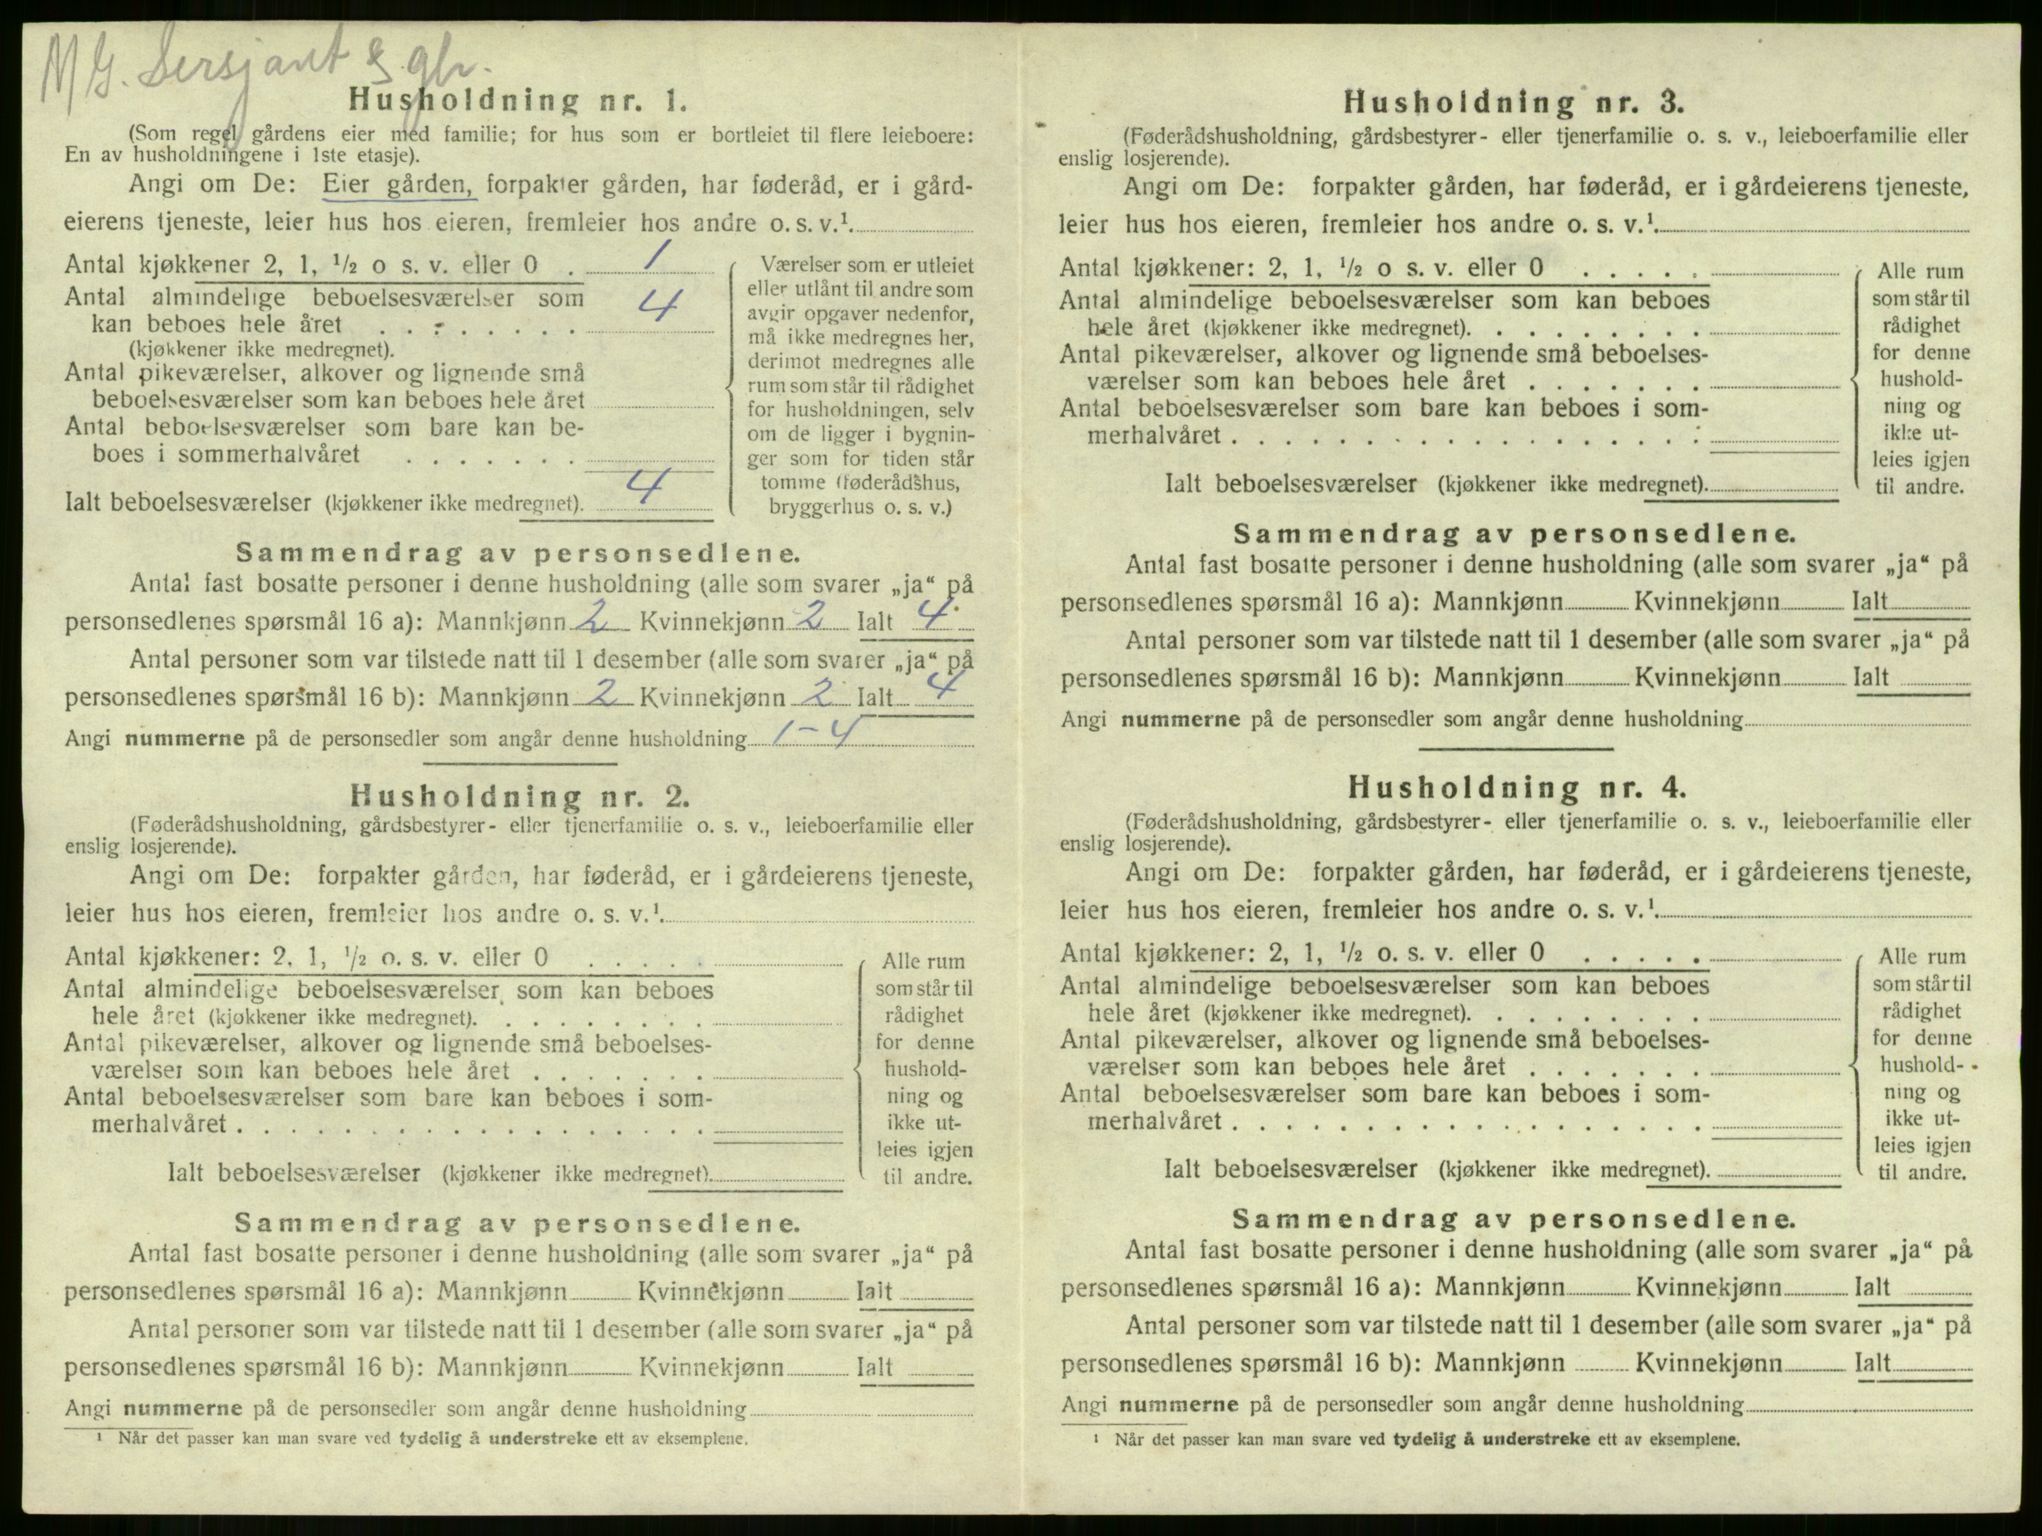 M G. Sersjant & gbr.
Husholdning nr. 1.
(Som regel gårdens eier med familie; for hus som er bortleiet til flere leieboere:
En av husholdningene i 1ste etasje).
Angi om De: Eier gården, forpakter gården, har føderåd, er i gård-
eierens tjeneste, leier hus hos eieren, fremleier hos andre o. s. v.¹
Antal kjøkkener 2, 1, ½ o s. v. eller 0 . 1
Antal almindelige beboelsesværelser som
kan beboes hele året . . . . . . . . 4
(kjøkkener ikke medregnet).
Antal pikeværelser, alkover og lignende små
beboelsesværelser som kan beboes hele året
Antal beboelsesværelser som bare kan be-
boes i sommerhalvåret . . . . . . .
Ialt beboelsesværelser (kjøkkener ikke medregnet). 4
Værelser som er utleiet
eller utlånt til andre som
avgir opgaver nedenfor,
må ikke medregnes her,
derimot medregnes alle
rum som står til rådighet
for husholdningen, selv
om de ligger i bygnin-
ger som for tiden står
tomme (føderådshus,
bryggerhus o. s. v.)
Sammendrag av personsedlene.
Antal fast bosatte personer i denne husholdning (alle som svarer „ja“ på
personsedlenes spørsmål 16 a): Mannkjønn 2 Kvinnekjønn 2 Ialt 4.
Antal personer som var tilstede natt til 1 desember (alle som svarer „ja“ på
personsedlenes spørsmål 16 b): Mannkjønn 2 Kvinnekjønn 2 Ialt 4
Angi nummerne på de personsedler som angår denne husholdning 1-4
Husholdning nr. 2.
(Føderådshusholdning, gårdsbestyrer- eller tjenerfamilie o. s. v., leieboerfamilie eller
enslig losjerende).
Angi om De: forpakter gården, har føderåd, er i gårdeierens tjeneste,
leier hus hos eieren, fremleier hos andre o. s. v.¹
Antal kjøkkener: 2, 1, ½ o. s. v. eller 0 . . . . .
Antal almindelige beboelsesværelser som kan beboes
hele året (kjøkkener ikke medregnet). . . . . . . . .
Antal pikeværelser, alkover og lignende små beboelses-
værelser som kan beboes hele året . . . . . . .
Antal beboelsesværelser som bare kan beboes i som-
merhalvåret . . . . . . . . . . . . . . . . . .
Ialt beboelsesværelser (kjøkkener ikke medregnet).
Alle rum
som står til
rådighet
for denne
hushold-
ning og
ikke ut-
leies igjen
til andre.
Sammendrag av personsedlene.
Antal fast bosatte personer i denne husholdning (alle som svarer „ja“ på
personsedlenes spørsmål 16 a): Mannkjønn Kvinnekjønn Ialt
Antal personer som var tilstede natt til 1 desember (alle som svarer „ja“ på
personsedlenes spørsmål 16 b): Mannkjønn Kvinnekjønn Ialt
Angi nummerne på de personsedler som angår denne husholdning
¹ Når det passer kan man svare ved tydelig å understreke ett av eksemplene.
Husholdning nr. 3.
(Føderådshusholdning, gårdsbestyrer- eller tjenerfamilie o. s. v., leieboerfamilie eller
enslig losjerende).
Angi om De: forpakter gården, har føderåd, er i gårdeierens tjeneste,
leier hus hos eieren, fremleier hos andre o. s. v.¹
Antal kjøkkener: 2, 1, ½ o s. v. eller 0 . . . . .
Antal almindelige beboelsesværelser som kan beboes
hele året (kjøkkener ikke medregnet). . . . . . . . .
Antal pikeværelser, alkover og lignende små beboelses-
værelser som kan beboes hele året . . . . . . .
Antal beboelsesværelser som bare kan beboes i som-
merhalvåret . . . . . . . . . . . . . . . . . .
Ialt beboelsesværelser (kjøkkener ikke medregnet).
Alle rum
som står til
rådighet
for denne
hushold-
ning og
ikke ut-
leies igjen
til andre.
Sammendrag av personsedlene.
Antal fast bosatte personer i denne husholdning (alle som svarer „ja“ på
personsedlenes spørsmål 16 a): Mannkjønn Kvinnekjønn Ialt
Antal personer som var tilstede natt til 1 desember (alle som svarer „ja“ på
personsedlenes spørsmål 16 b): Mannkjønn Kvinnekjønn Ialt
Angi nummerne på de personsedler som angår denne husholdning
Husholdning nr. 4.
(Føderådshusholdning, gårdsbestyrer- eller tjenerfamilie o. s. v., leieboerfamilie eller
enslig losjerende).
Angi om De: forpakter gården, har føderåd, er i gårdeierens tjeneste,
leier hus hos eieren, fremleier hos andre o. s. v.¹
Antal kjøkkener: 2, 1, ½ o. s. v. eller 0 . . . . .
Antal almindelige beboelsesværelser som kan beboes
hele året (kjøkkener ikke medregnet). . . . . . . . .
Antal pikeværelser, alkover og lignende små beboelses-
værelser som kan beboes hele året . . . . . . .
Antal beboelsesværelser som bare kan beboes i som-
merhalvåret . . . . . . . . . . . . . . . . . .
Ialt beboelsesværelser (kjøkkener ikke medregnet).
Alle rum
som står til
rådighet
for denne
hushold-
ning og
ikke ut-
leies igjen
til andre.
Sammendrag av personsedlene.
Antal fast bosatte personer i denne husholdning (alle som svarer „ja“ på
personsedlenes spørsmål 16 a): Mannkjønn Kvinnekjønn Ialt
Antal personer som var tilstede natt til 1 desember (alle som svarer „ja“ på
personsedlenes spørsmål 16 b): Mannkjønn Kvinnekjønn Ialt
Angi nummerne på de personsedler som angår denne husholdning
¹ Når det passer kan man svare ved tydelig å understreke ett av eksemplene.